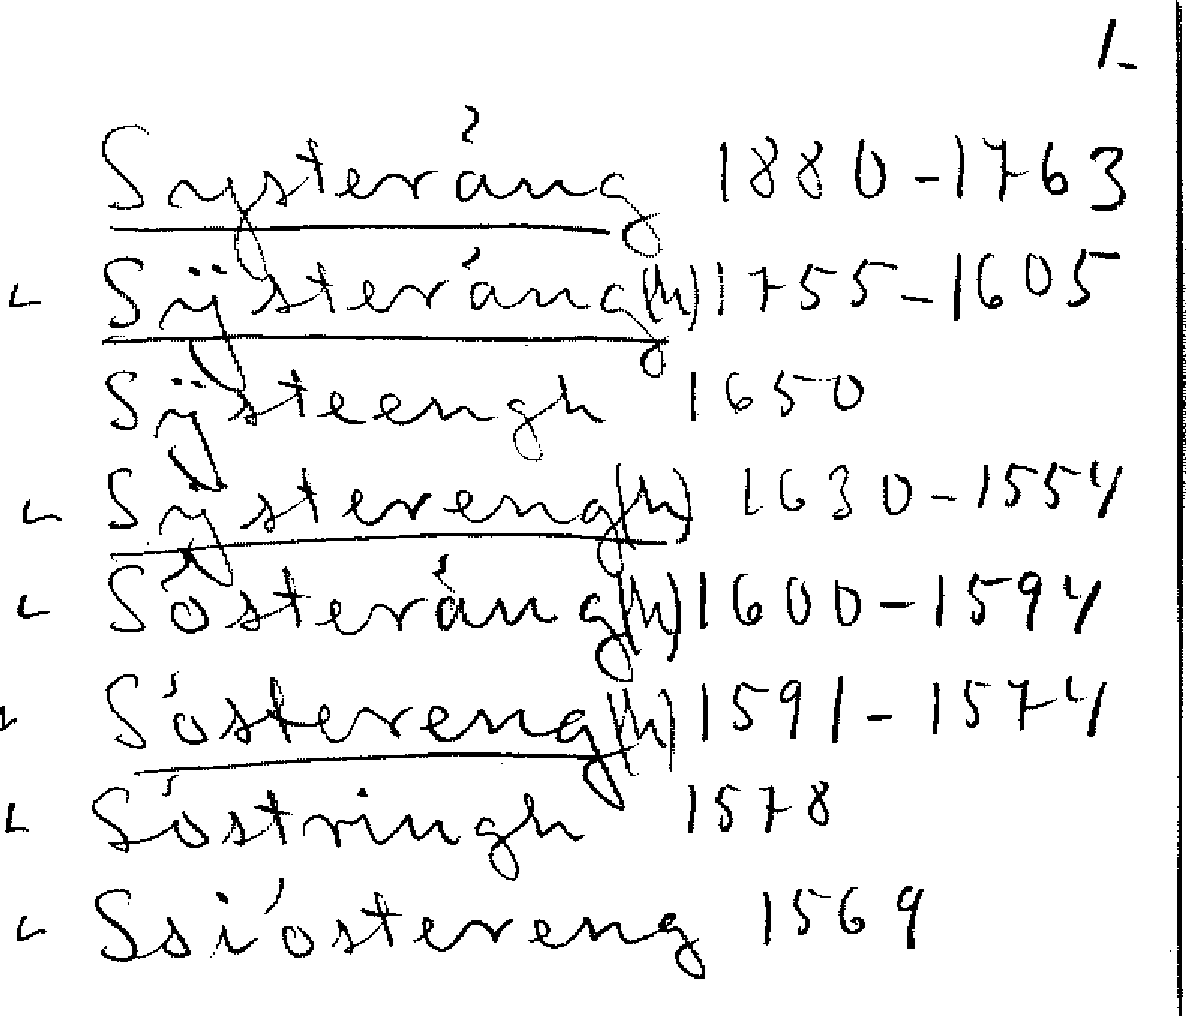 1.
Systeräng 1880-1763
Sÿsteräng(h) 1755-1605
Sÿsteengh 1650
Systereng(h) 1630-1554
Sösteräng(h) 1600-1594
Söstereng(h) 1591-1574
Söstringh 1578
Ssiöstereng 1569